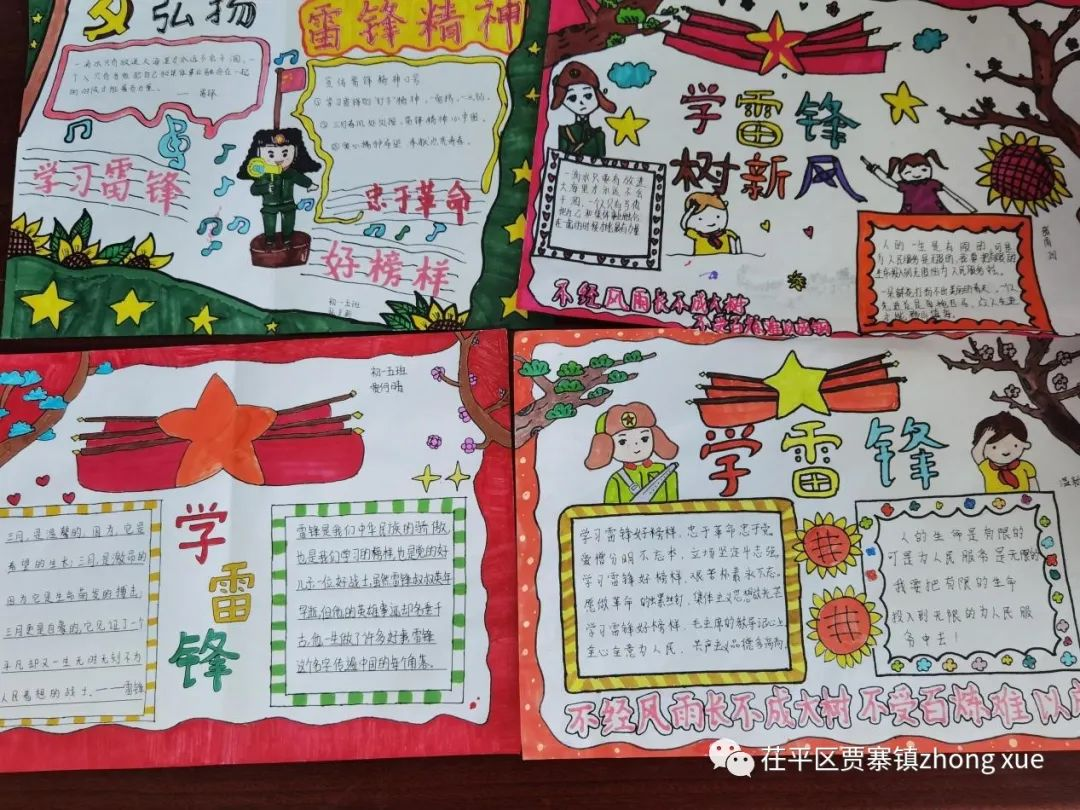 弘扬
雷锋精神
一滴水只有放进大海里才永远不会干涸,一
个人只有当他把自己和集体事业融合在一起
的时候才能最有力量。
——雷锋
宣传雷锋精神口号
①学习雷锋的"钉子"精神,一曰挤,一曰钻。
学习雷锋
忠于革命
好榜样
初一五班
学雷锋
树新风
一滴水只有放进
大海里才永远不会
干涸,一个人只有当他
把自己和集体事业融合
在一起的时候才能最有力量
人的一生是有限的,可是
为人民服务是无限的,我要把有限的
生命投入到无限的为人民服务中去。
不经风雨长不成大树
不受百炼难以成钢
初一五班
学
雷
锋
三月,是温馨的,因为,它是
希望的生长;三月,是激昂的
因为它是生命萌发的撞击;
三月更是自豪的,它见证了一个
平凡却又一生无时无刻不为
人民着想的战士。——雷锋
雷锋是我们中华民族的骄傲,
也是我们学习的榜样,也是党的好
儿子一位好战士,虽然雷锋叔叔英年
早逝,但他的英雄事迹却名垂千
古,他一生做了许多好事,雷锋
这个名字传遍中国的每个角落。
学雷锋
学习雷锋好榜样,忠于革命忠于党,
爱憎分明不忘本,立场坚定斗志强,
学习雷锋好榜样,艰苦朴素永不忘,
愿做革命的螺丝钉,集体主义思想放光芒
学习雷锋好榜样,毛主席的教导记心上
全心全意为人民,共产主义品德多高尚
人的生命是有限的
可是为人民服务是无限的
我要把有限的生命
投入到无限的为人民服
务中去!
不经风雨长不成大树 不受百炼难以成
茌平区贾寨镇zhong xue